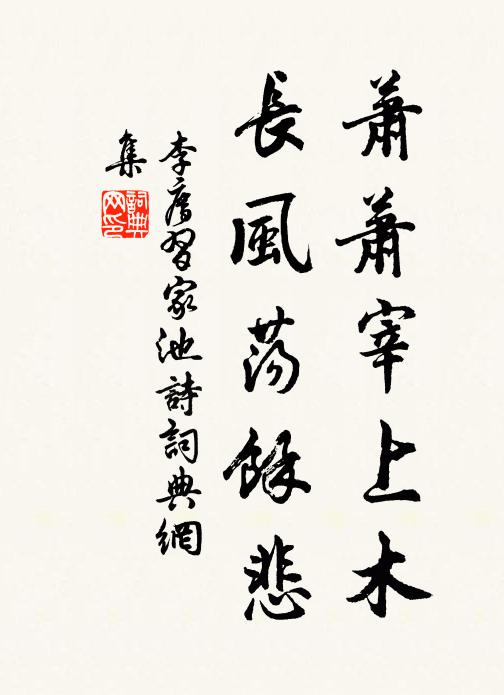 蕭蕭宰上木
長風蕩餘悲
李廌習家池詩詞典網
集
詞典
网印